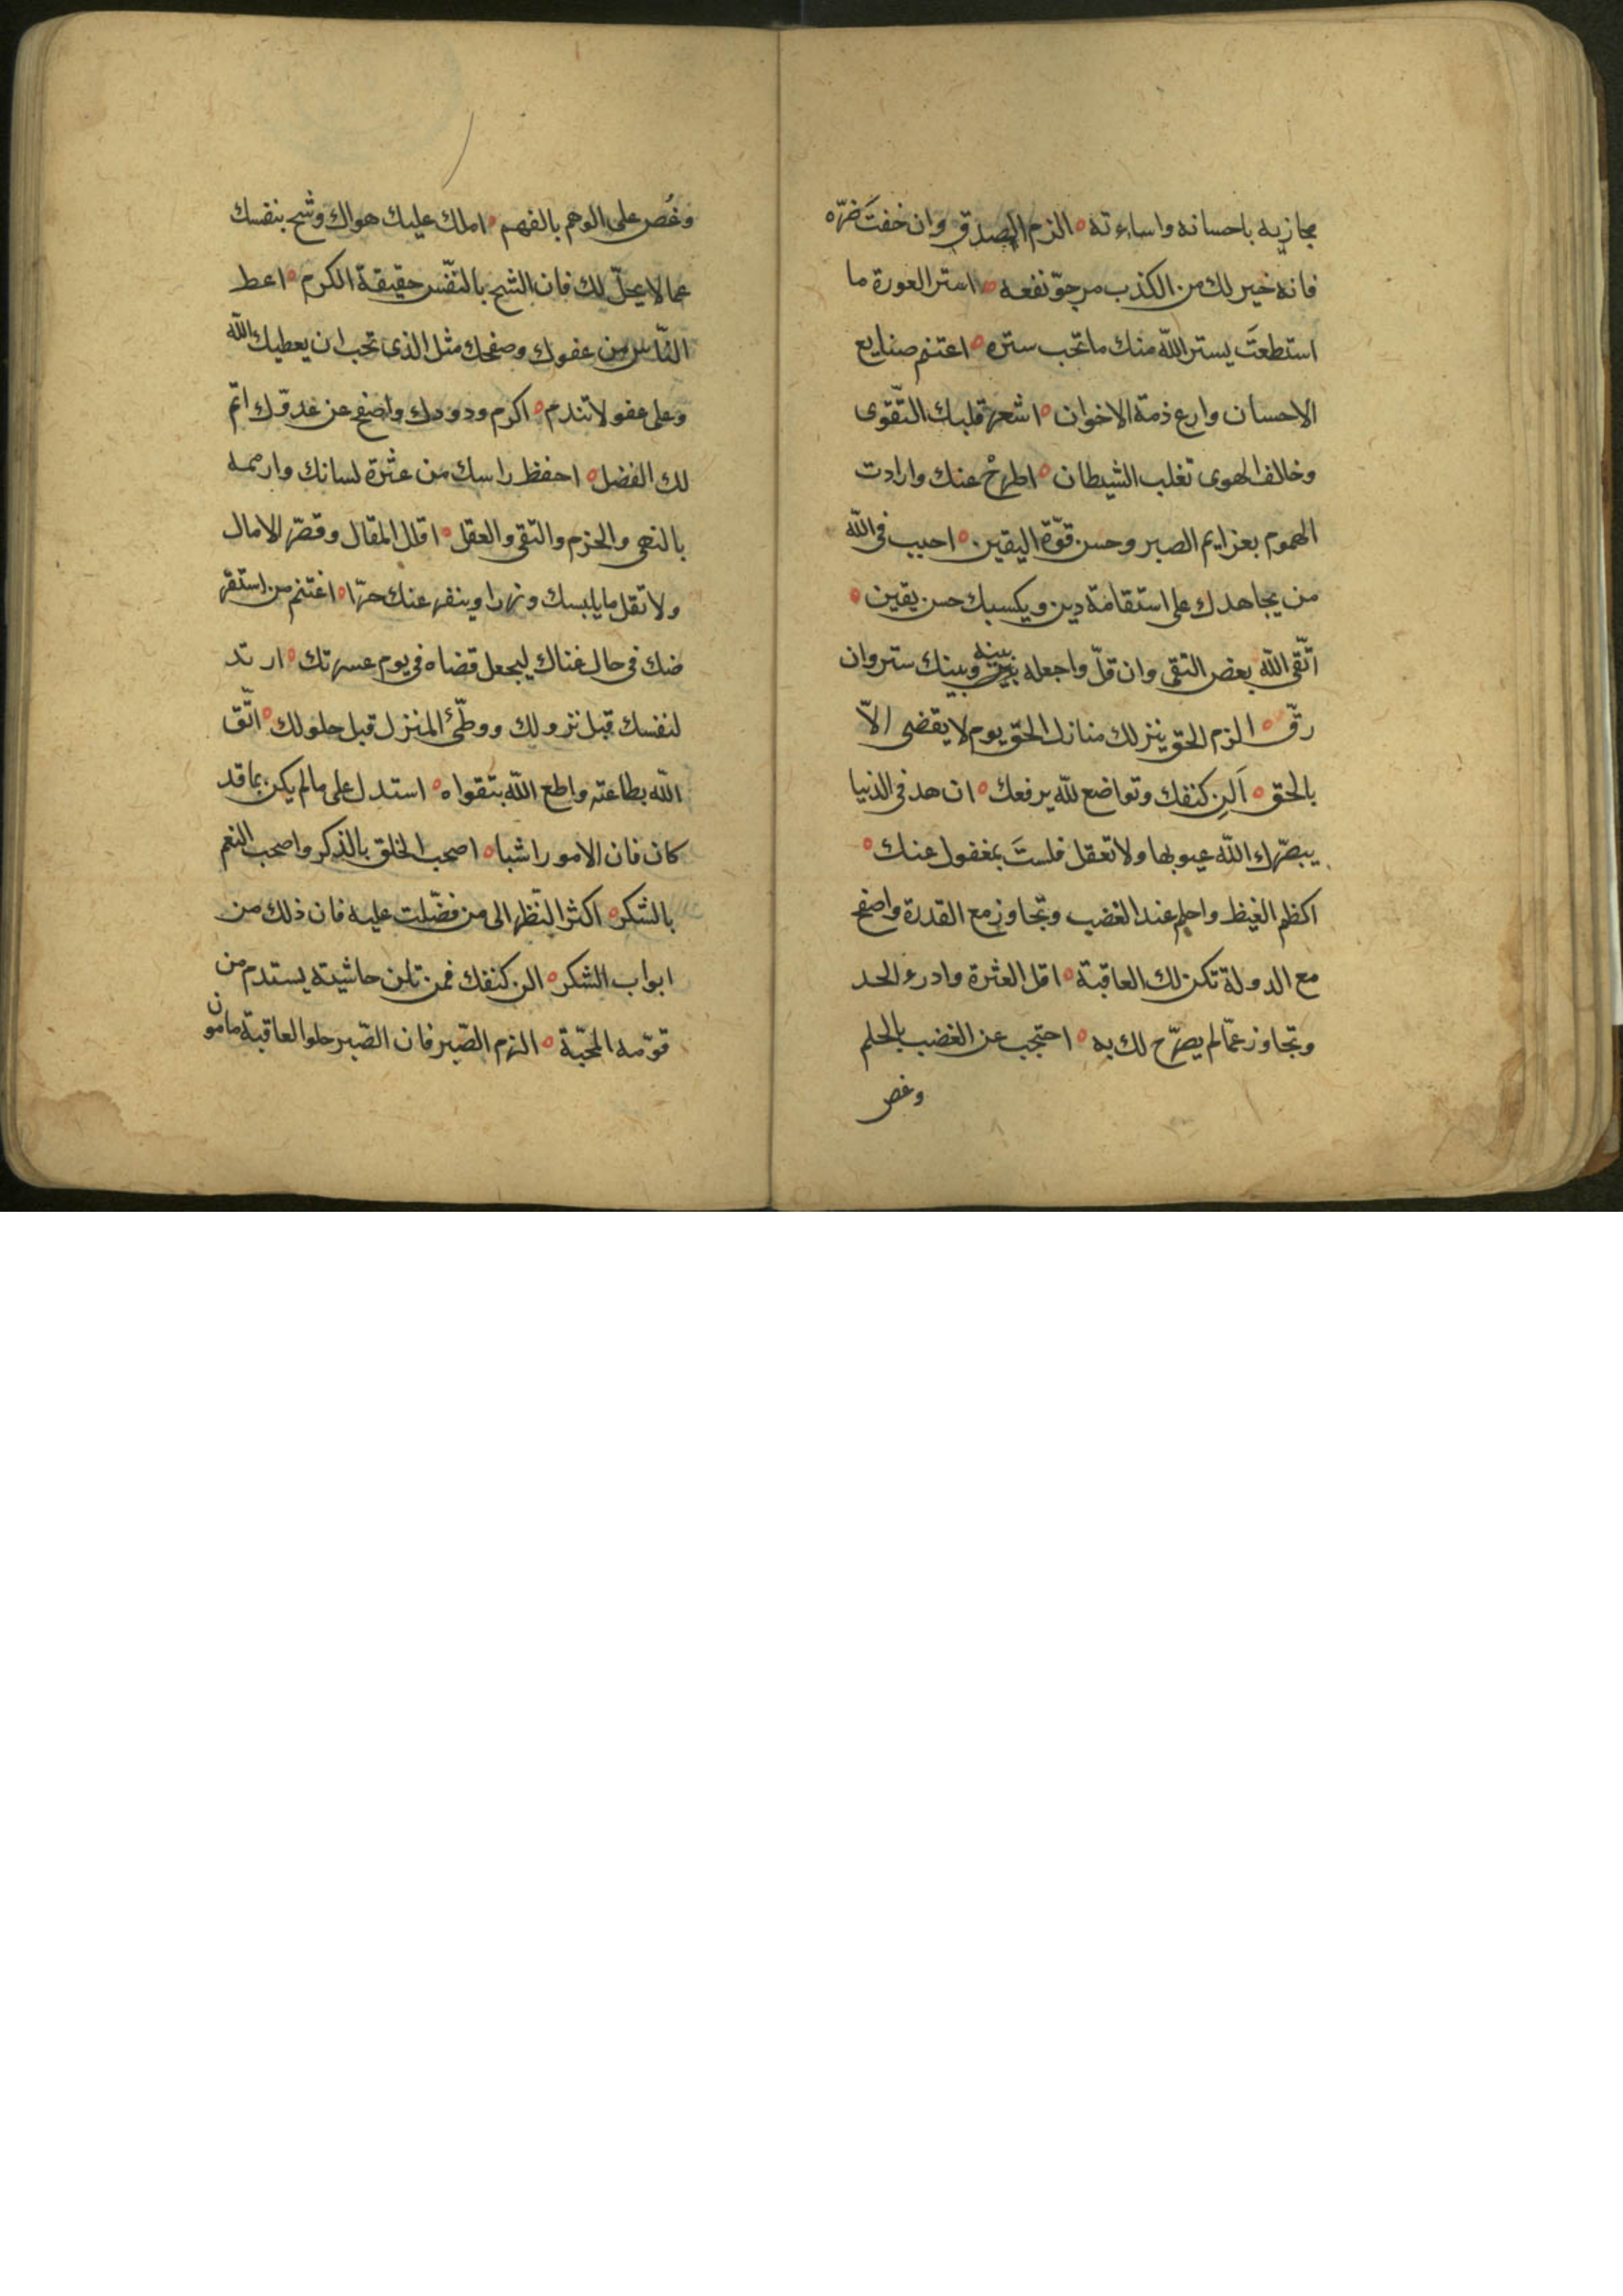 مجازيه باحسانه واساءته ه الزم الصدق وان خفت ضرّه
فانه خير لك من الكذب مرجوّ نفعه ه استر العورة ما
استطعتَ يستر اللّه منك ما تحب ستره ه اغتنم صنايع
الاحسان وارع ذمة الاخوان ه اشعر قلبك التّقوى
وخالف الهوى تغلب الشيطان ه اطرحْ عنك وارادت
الهموم بعزايم الصبر وحسن قوّة اليقين ه احبب فى اللّه
من يجاهدك على استقامة دين ويكسبك حسن يقين ه
اتّقى اللّه بعض التقى وان قلّ واجعله بينه وبينك ستر وان
رقّ ه الزم الحق ينزلك منازل الحقّ يوم لا يقضى الاّ
بالحق ه اَلِن كنفك وتواضع للّه يرفعك ه ازهد فى الدنيا
يبصّرك اللّه عيوبها ولا تغفل فلستَ بمغفول عنك ه
اكظم الغيظ واحلم عند الغضب وتجاوز مع القدرة واصفح
مع الدولة تكن لك العاقبة ه اقل العثرة وادرء الحد
وتجاوز عمّا لم يصرّح لك به ه احتجب عن الغضب بالحلم
وغص
وغُص على الوهم بالفهم ه املك عليك هواك وشح بنفسك
عما لا يحلّ لك فان الشح بالنّفس حقيقة الكرم ه اعط
النّاس من عفوك وصفحك مثل الذى تحب ان يعطيك اللّه
وعلى عفو لا تندم ه اكرم ودودك واصفح عن عدوّك اتم
لك الفضل ه احفظ راسك من عثرة لسانك وارممه
بالنهى والحزم والتقى والعقل ه اقلل المقال وقصّر الامال
ولا تقل ما يلبسك وزرا وينفر عنك حرّا ه اغتنم من استقر
ضك فى حال غناك ليجعل قضاه فى يوم عسرتك ه ارتد
لنفسك قبل نزولك ووطّئ المنزل قبل حلولك ه اتّق
اللّه بطاعته واطع اللّه بتقواه ه استدل على ما لم يكن بما قد
كان فان الامور اشبا ه اصحب الخلق بالذكر واصحب النعم
بالشكر ه اكثر النّظر الى من فضّلت عليه فان ذلك من
ابواب الشكر ه الن كنفك فمن تلن حاشيته يستدم من
قوّمه المحبّة ه الزم الصّبر فان الصّبر حلو العاقبة مامون